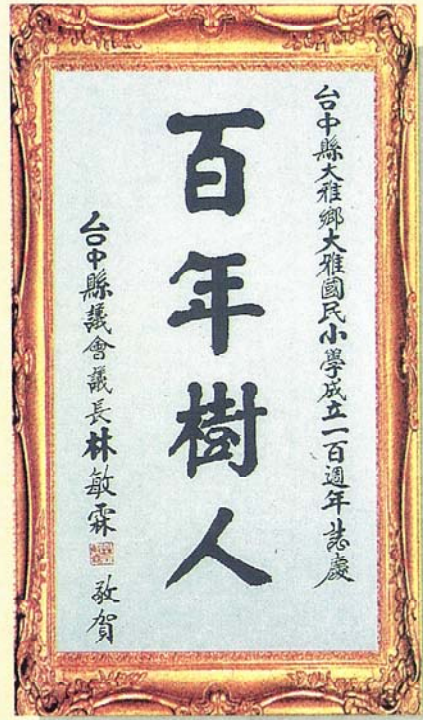 台中縣大雅鄉大雅國民小學成立一百週年誌慶
百年樹人
台中縣議會議長林敏霖
敬賀